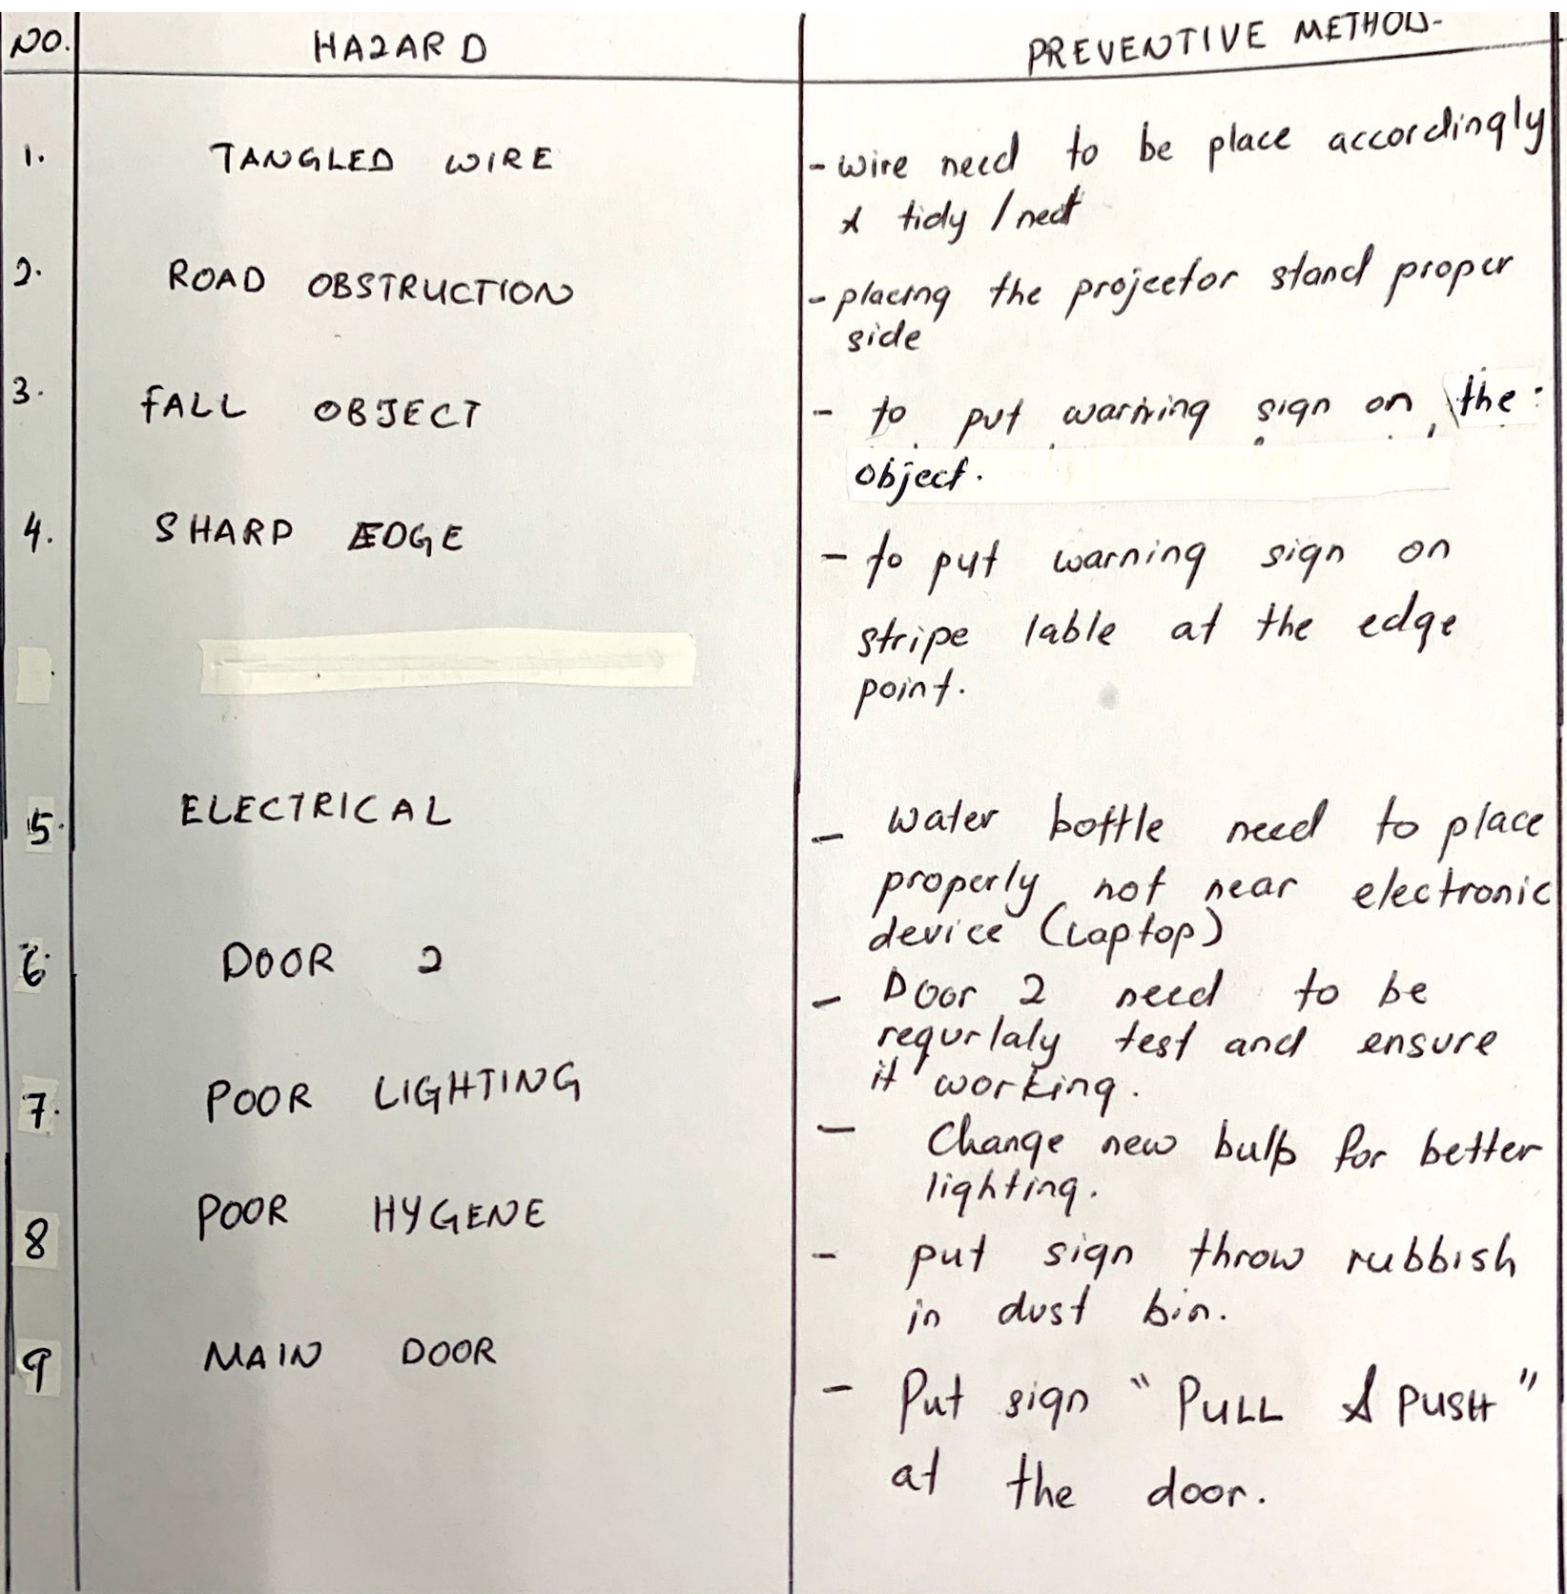 NO. HAZARD PREVENTIVE METHOD.
1. TANGLED WIRE - wire need to be place accordingly
& tidy / neat
2. ROAD OBSTRUCTION - placing the projector stand proper
side
3. FALL OBJECT - to put warning sign on the
object.
4. SHARP EDGE - to put warning sign on
stripe lable at the edge
point.
5. ELECTRICAL - water bottle need to place
properly not near electronic
device (Laptop)
6. DOOR 2 - Door 2 need to be
requrlaly test and ensure
it working.
7. POOR LIGHTING - Change new bulb for better
lighting.
8 POOR HYGENE - put sign throw rubbish
in dust bin.
9 MAIN DOOR - Put sign "PULL & PUSH"
at the door.